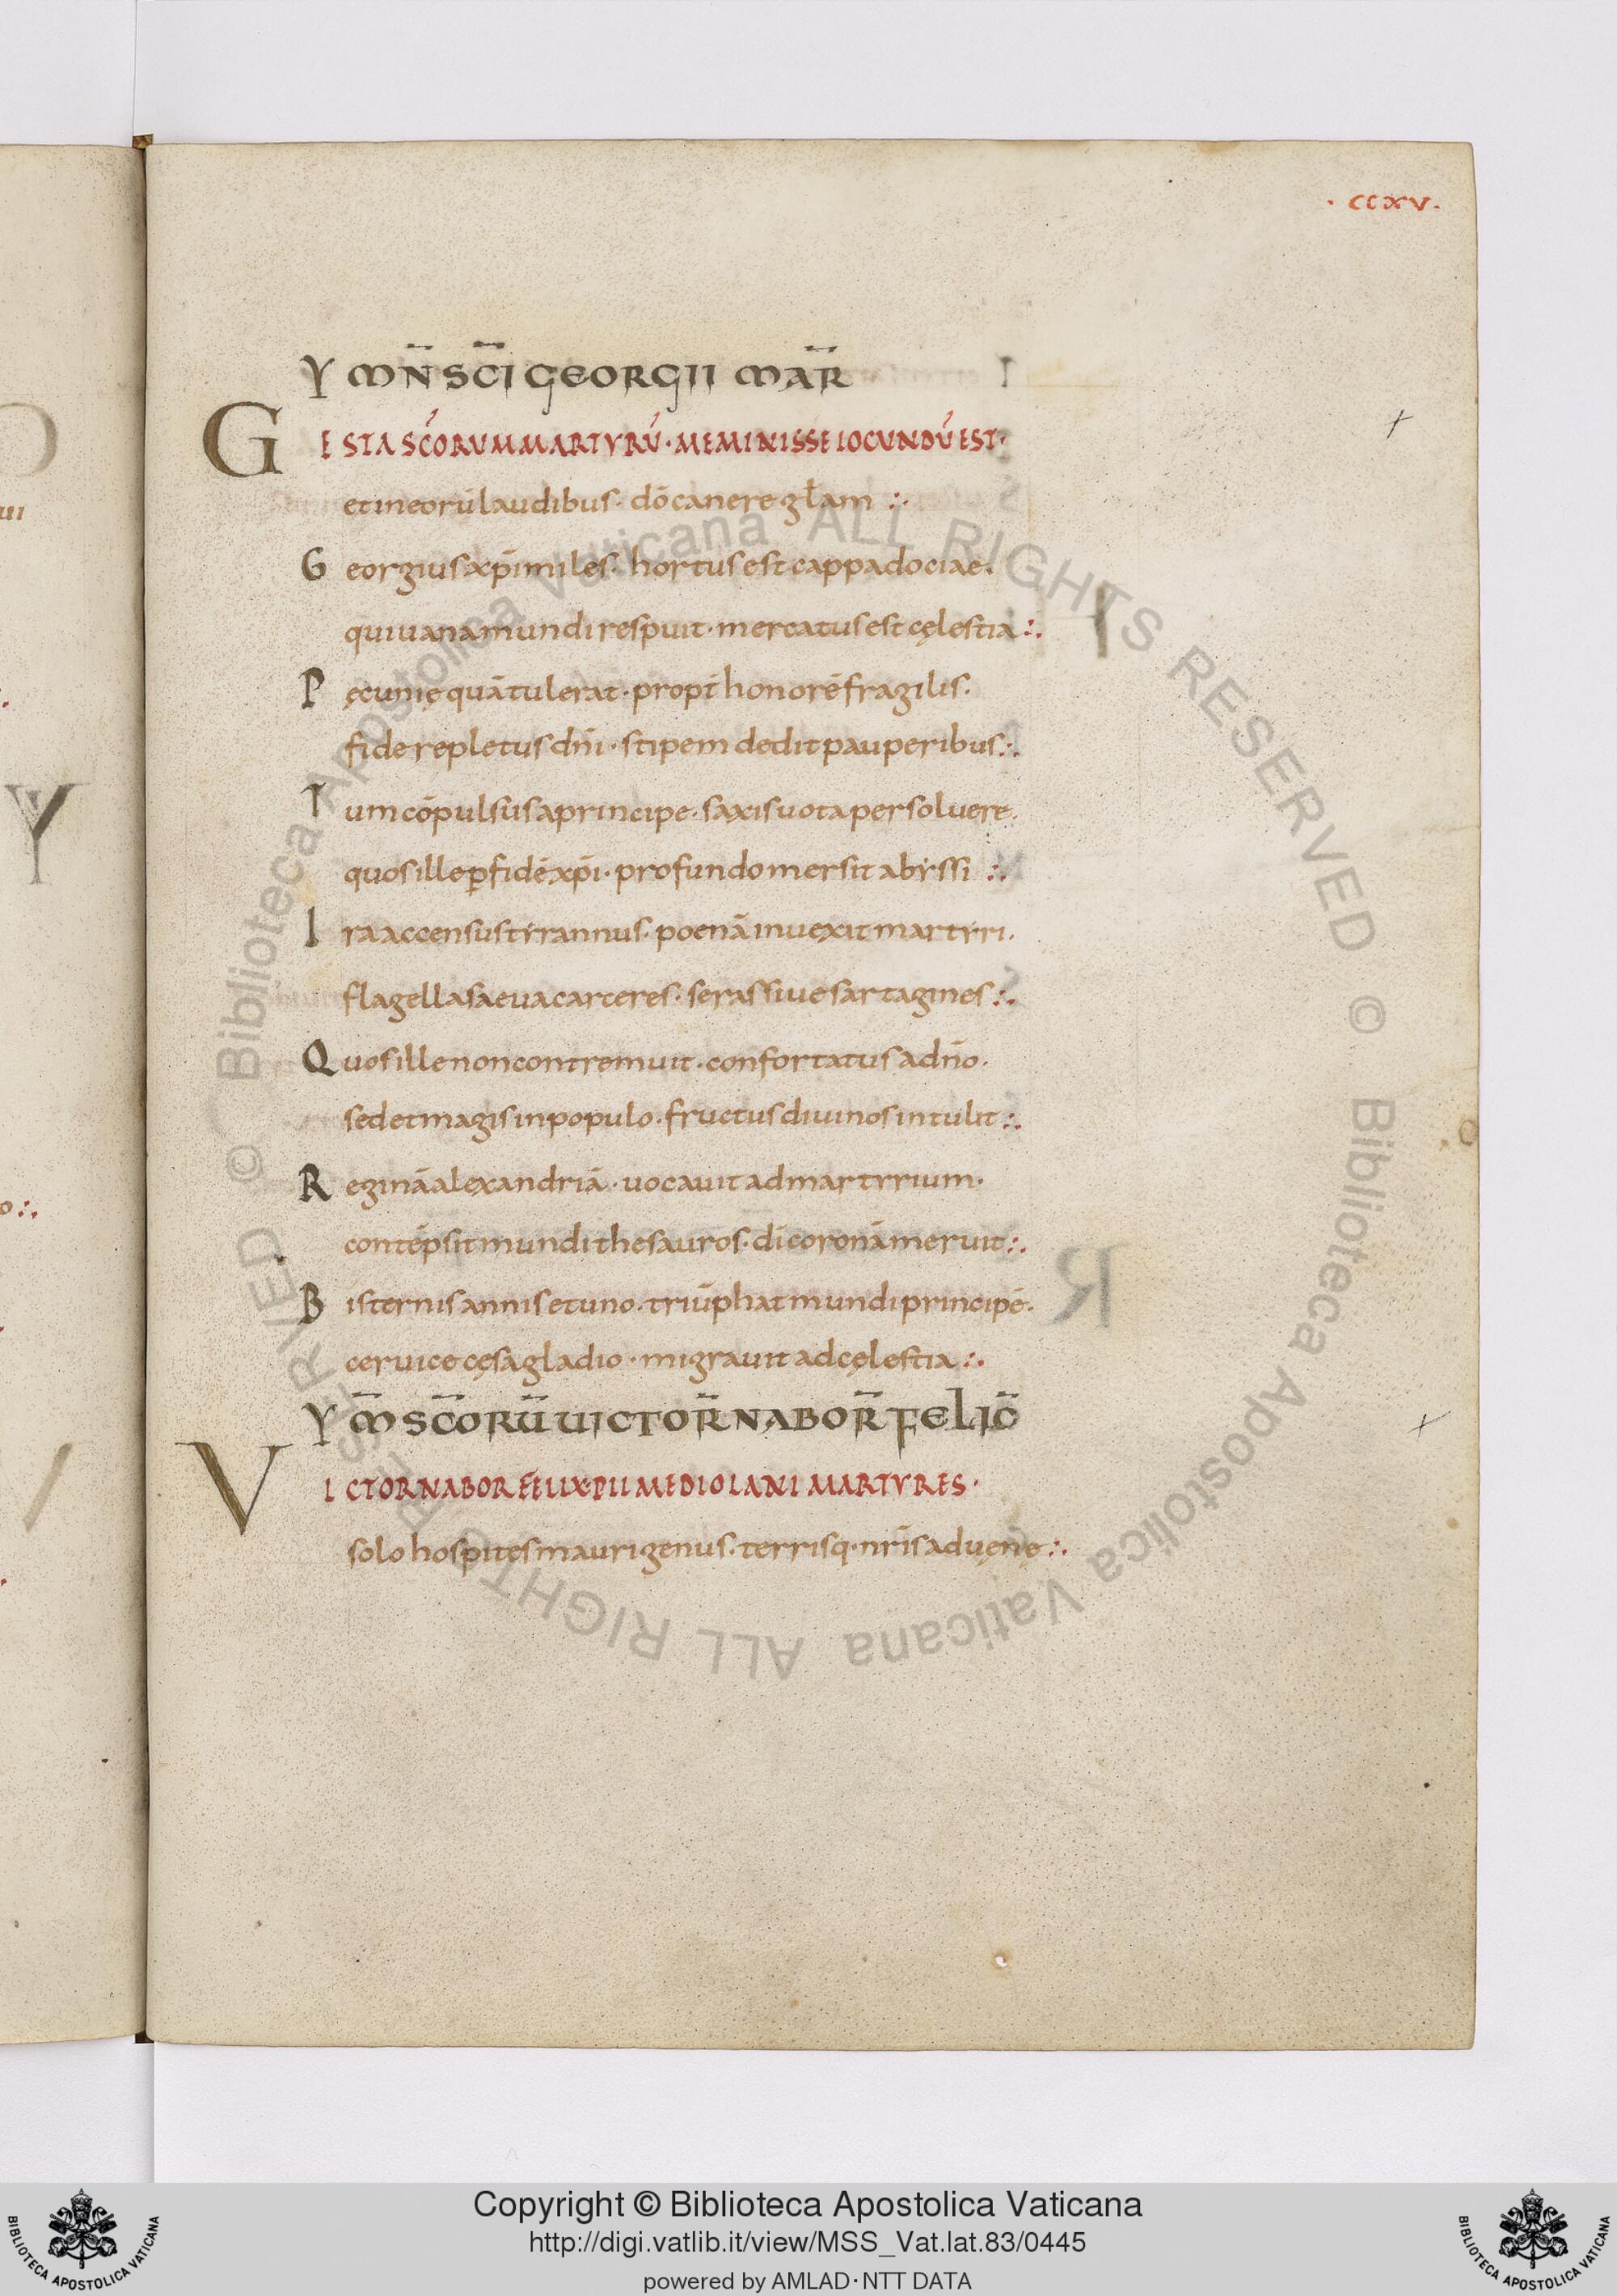 · ccxv ·
YMN̄ SC̄I GEORGII MAR̄
GESTA SC̄ORUM MARTYRŪ · MEMINISSE IOCUNDŪ EST ·
et in eorū laudibus · dō canere gl̄am :·
Georgius xp̄i miles · hortus est cappadociae ·
qui uana mundi respuit · mercatus est cęlestia :·
Pęcunię quā tulerat · propt̄ honorē fragilis ·
fide repletus dn̄i · stipem dedit pauperibus :·
Tum cōpulsus a principe · saxis uota persoluere ·
quos ille ꝑ fidē xp̄i · profundo mersit abyssi :·
Ira accensus tyrannus · poenā inuexit martyri ·
flagella saeua carceres · seras siue sartagines :·
Quos ille non contremuit · confortatus a dn̄o ·
sed et magis in populo · fructus diuinos intulit :·
Reginā alexandriā · uocauit ad martyrium ·
contēpsit mundi thesauros · dī coronā meruit :·
Bis ternis annis et uno · triūphat mundi principē ·
ceruice cęsa gladio · migrauit ad cęlestia :·
YM̄ SC̄ORŪ UICTOR̄ NABOR̄ FELIC̄
VICTOR NABOR FELIX PII MEDIOLANI MARTYRES ·
solo hospites mauri genus · terrisq· nr̄is aduenę :·
Copyright © Biblioteca Apostolica Vaticana
http://digi.vatlib.it/view/MSS_Vat.lat.83/0445
powered by AMLAD · NTT DATA
BIBLIOTECA APOSTOLICA VATICANA
BIBLIOTECA APOSTOLICA VATICANA
© Biblioteca Apostolica Vaticana ALL RIGHTS RESERVED
© Biblioteca Apostolica Vaticana ALL RIGHTS RESERVED